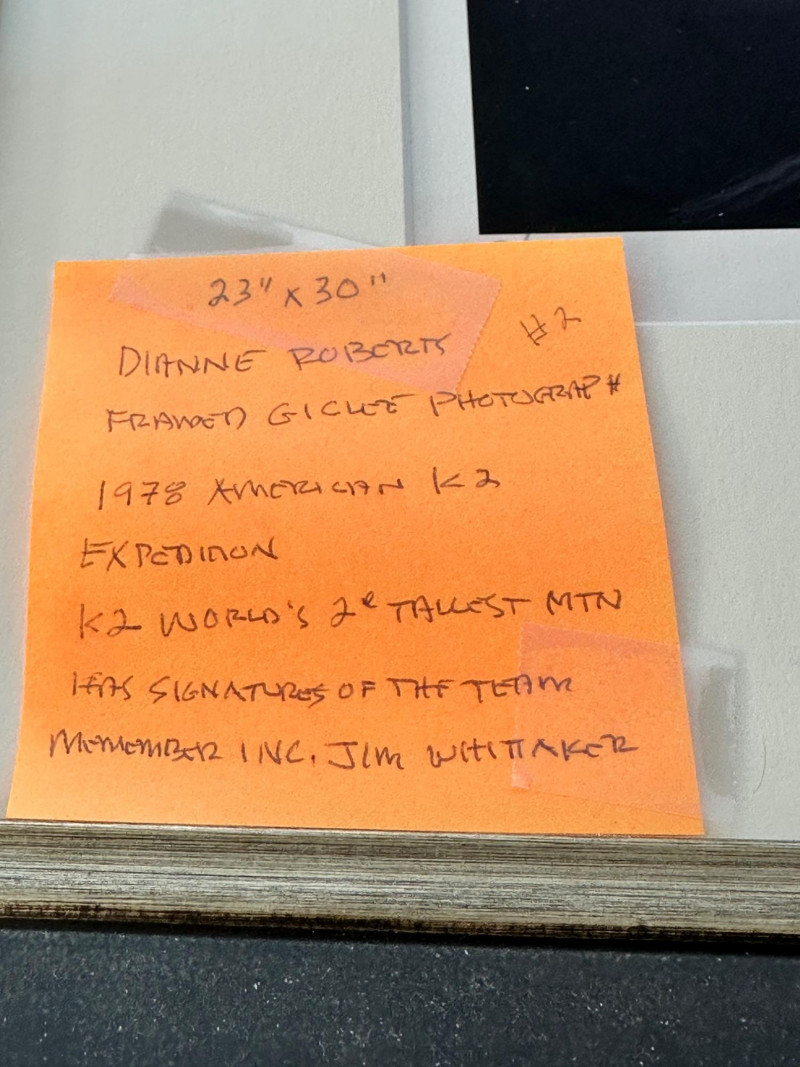 23" x 30"
#2
DIANNE ROBERTS
FRAMED GICLEE PHOTOGRAPH
1978 AMERICAN K2
EXPEDITION
K2 WORLD'S 2ᵉ TALLEST MTN
HAS SIGNATURES OF THE TEAM
MEMEMBER INC. JIM WHITTAKER